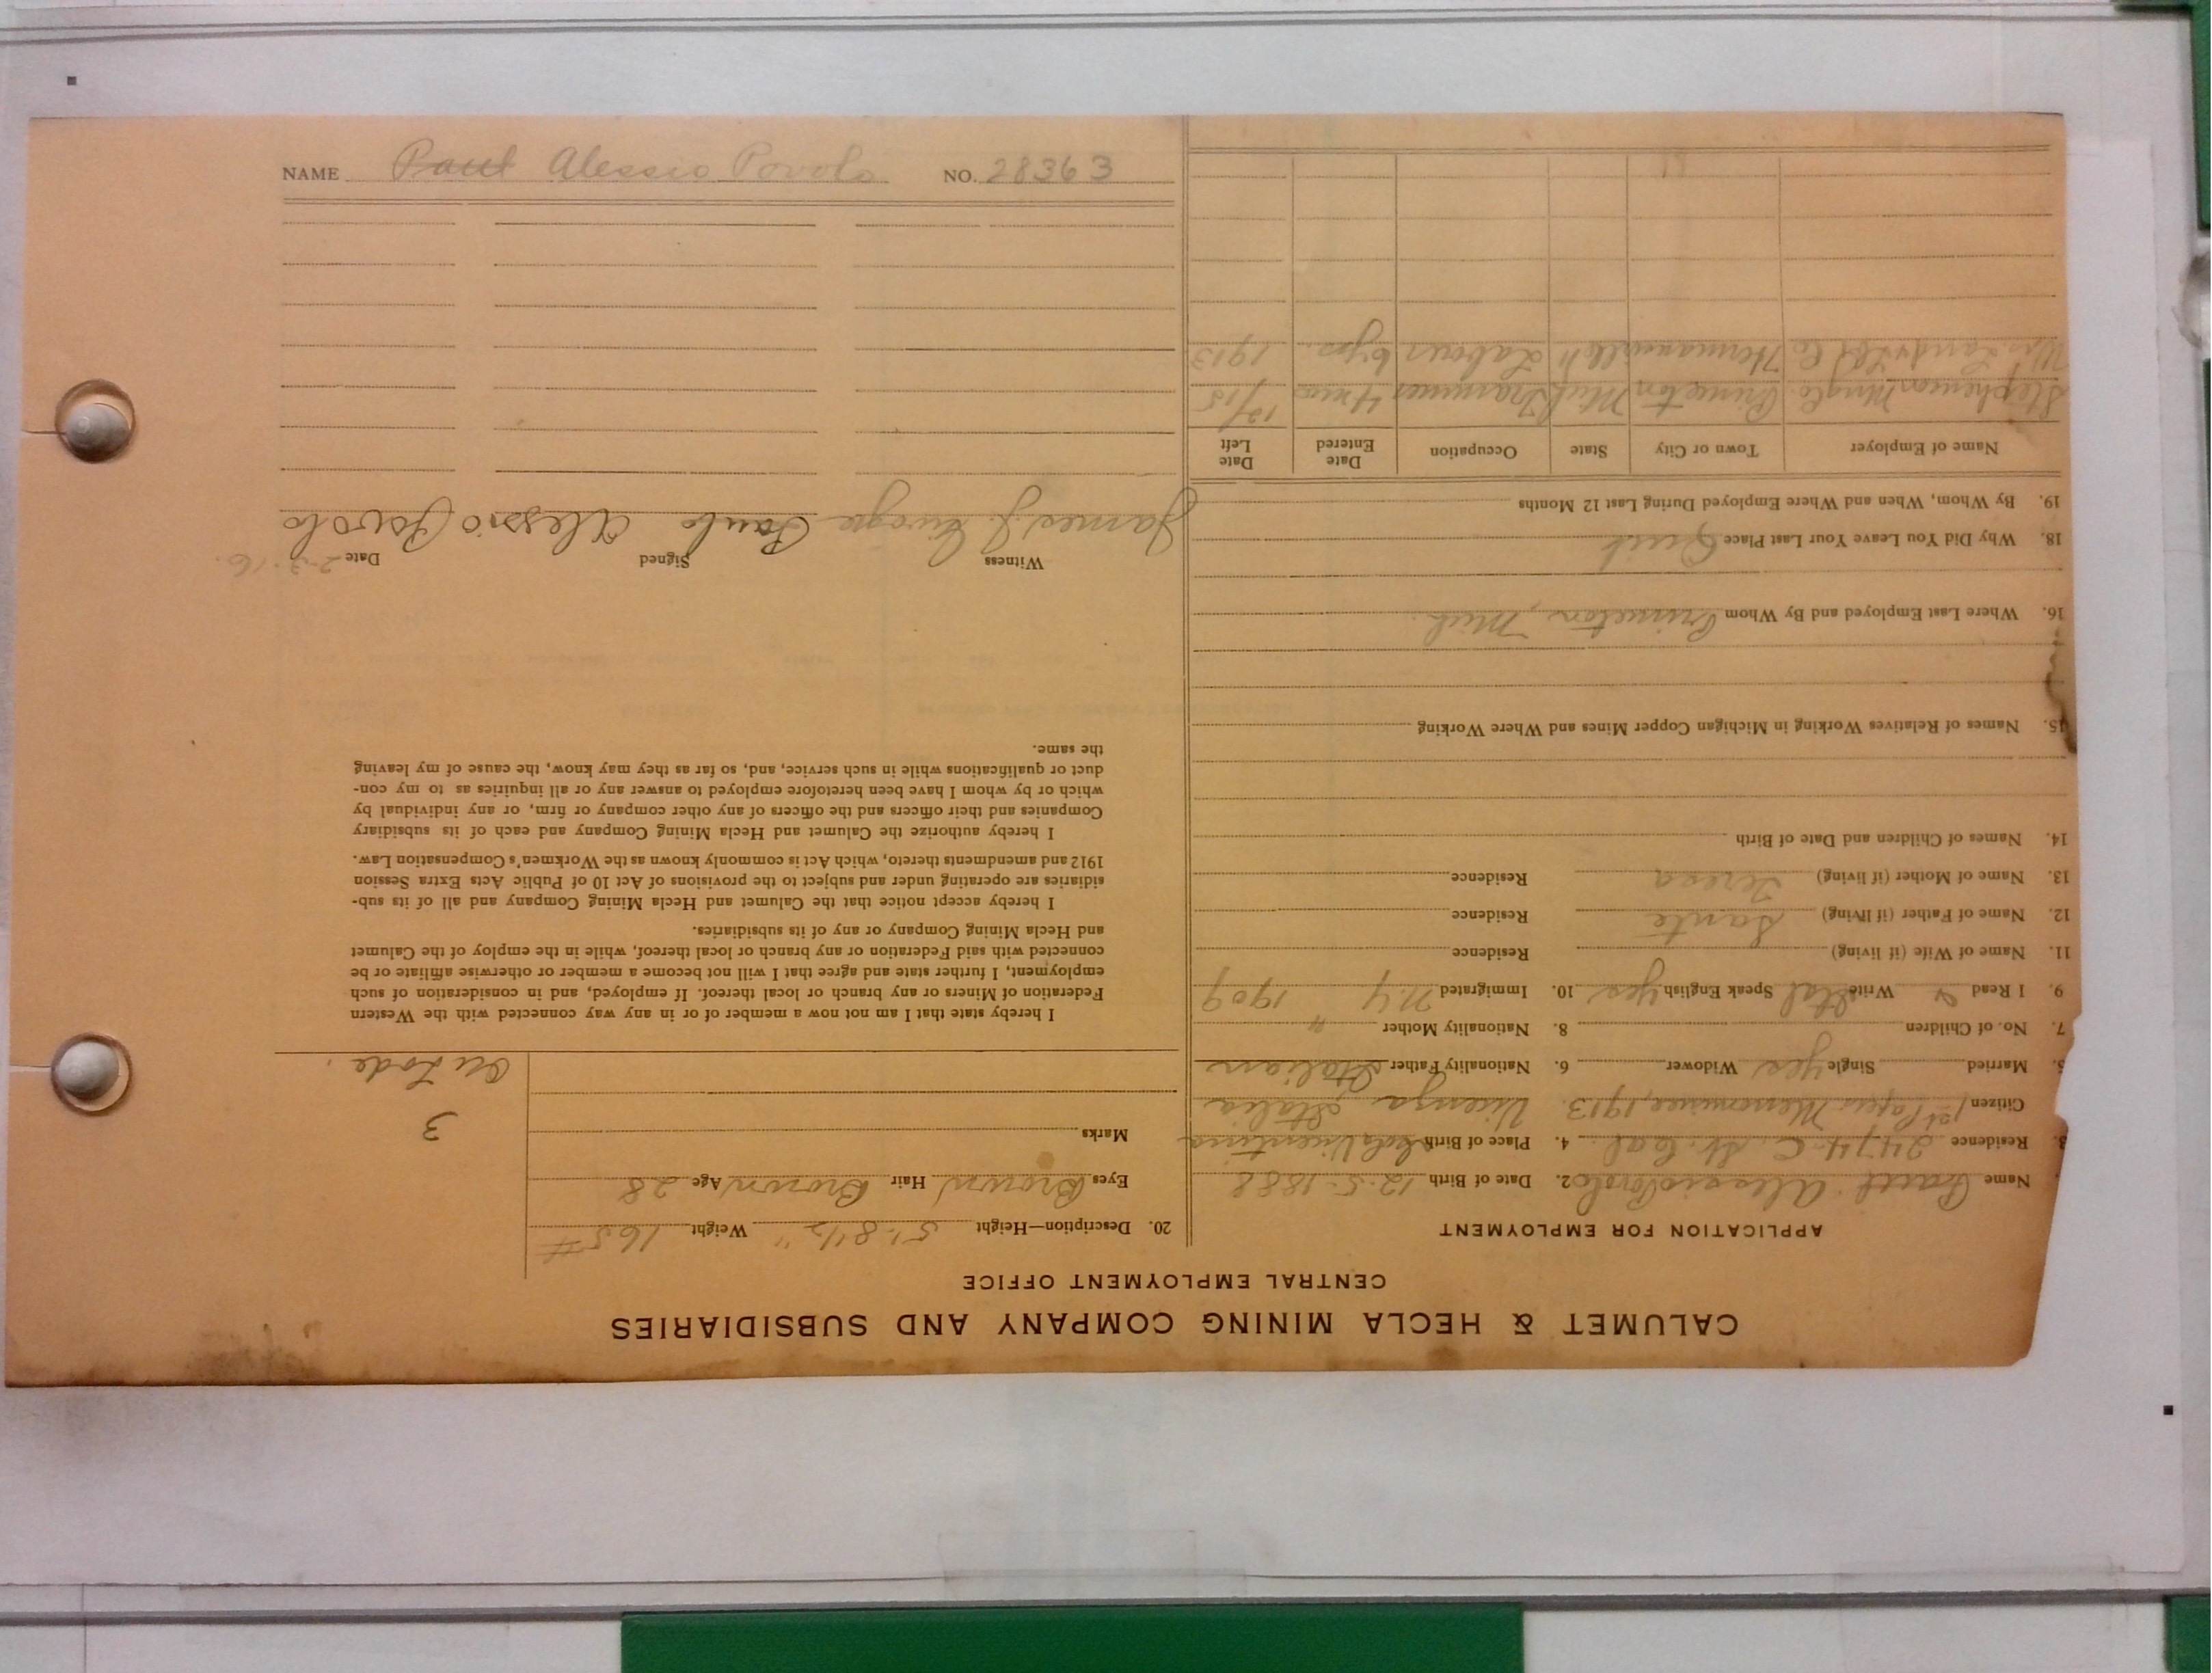 NAME Paul Alessio Povolo NO. 28363
CALUMET & HECLA MINING COMPANY AND SUBSIDIARIES
CENTRAL EMPLOYMENT OFFICE
APPLICATION FOR EMPLOYMENT
Name Paul Alessio Povolo 2. Date of Birth 12-5-1888
3. Residence 2474 C St. Cal 4. Place of Birth
Citizen 1st Papers Menominee, 1913. Vicenza Italia
5. Married Single yes Widower 6. Nationality Father Italian
7. No. of Children 8. Nationality Mother "
9. I Read & Write Ital Speak English yes 10. Immigrated N.Y 1909
11. Name of Wife (if living) Residence
12. Name of Father (if living) Sante Residence
13. Name of Mother (if living) Teresa Residence
14. Names of Children and Date of Birth
15. Names of Relatives Working in Michigan Copper Mines and Where Working
16. Where Last Employed and By Whom Princeton, Mich.
18. Why Did You Leave Your Last Place Quit
19. By Whom, When and Where Employed During Last 12 Months
Name of Employer Town or City State Occupation Date Entered Date Left
Stephenson Mng Co. Princeton Mich Trammer 4 mos 12/15
Wis. Land & Lbr Co Hermansville " Laborer 6 yrs. 1913
20. Description—Height 5'-8 1/2" Weight 165#
Eyes Brown Hair Brown Age 28
Marks
3
Lode.
I hereby state that I am not now a member of or in any way connected with the Western
Federation of Miners or any branch or local thereof. If employed, and in consideration of such
employment, I further state and agree that I will not become a member or otherwise affiliate or be
connected with said Federation or any branch or local thereof, while in the employ of the Calumet
and Hecla Mining Company or any of its subsidiaries.
I hereby accept notice that the Calumet and Hecla Mining Company and all of its sub-
sidiaries are operating under and subject to the provisions of Act 10 of Public Acts Extra Session
1912 and amendments thereto, which Act is commonly known as the Workmen's Compensation Law.
I hereby authorize the Calumet and Hecla Mining Company and each of its subsidiary
Companies and their officers and the officers of any other company or firm, or any individual by
which or by whom I have been heretofore employed to answer any or all inquiries as to my con-
duct or qualifications while in such service, and, so far as they may know, the cause of my leaving
the same.
Witness Signed Date 2-3-16.
James J. Paulo Alessio Povolo